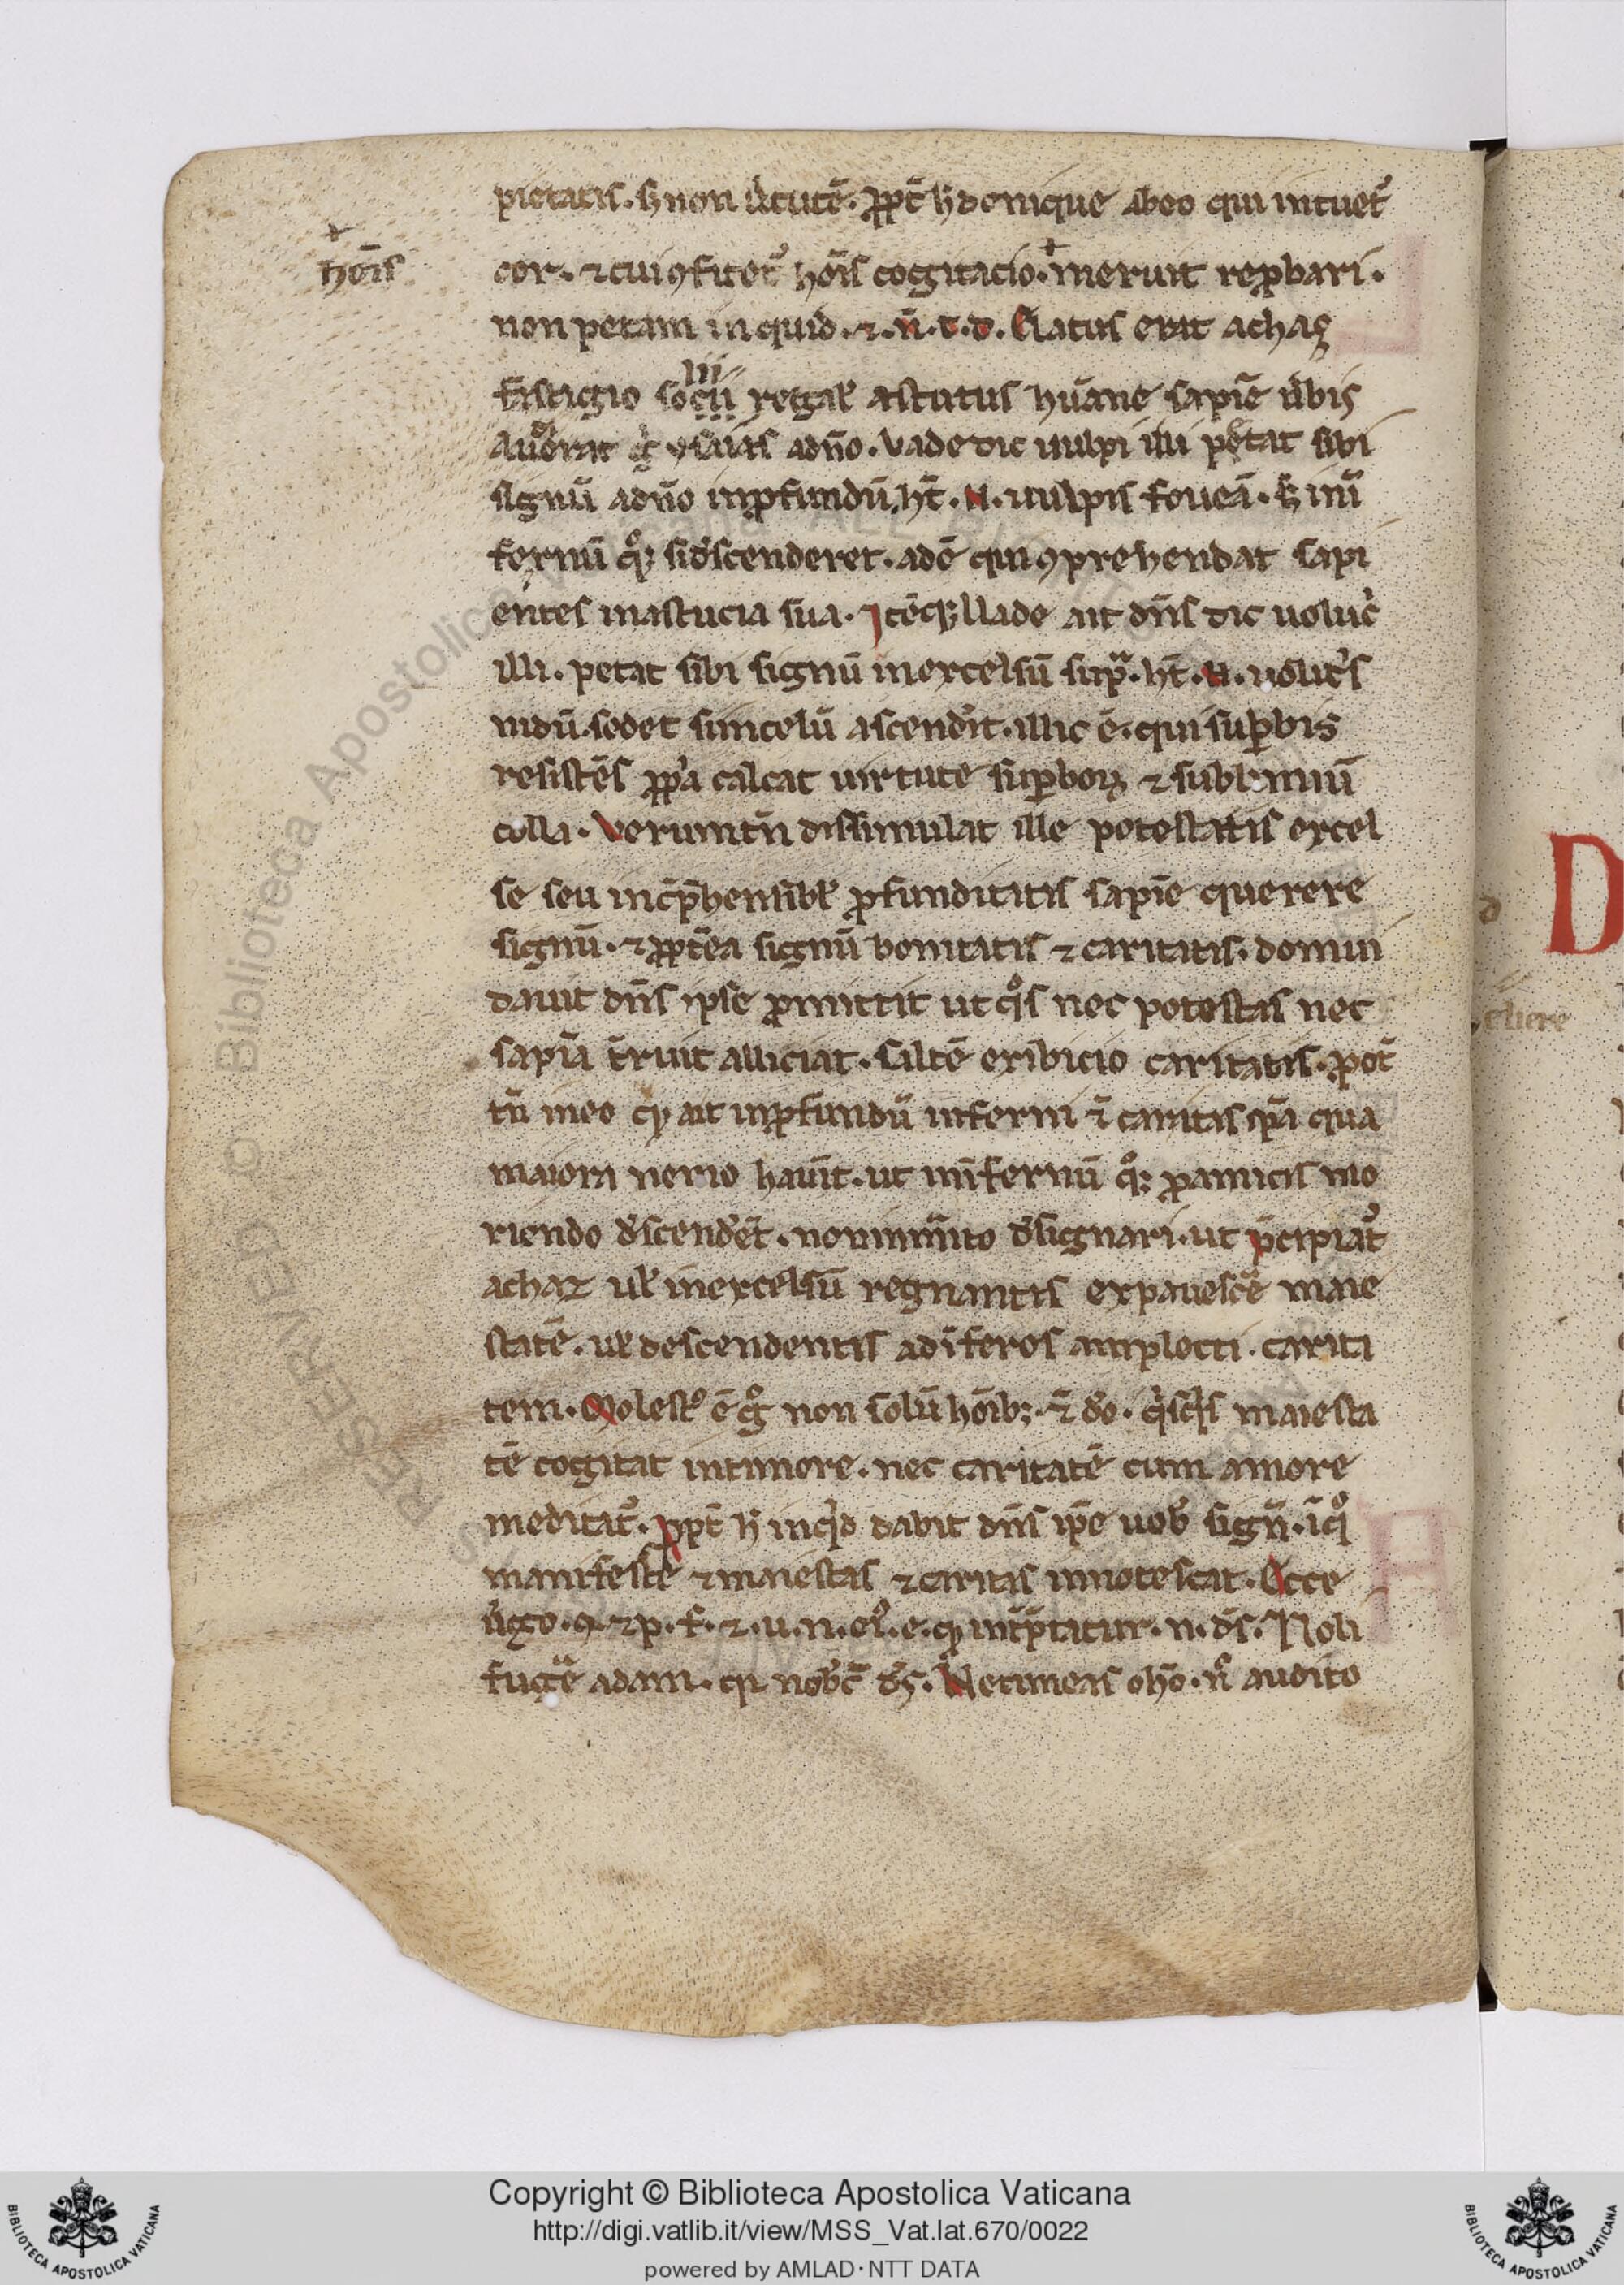 pietatis. s; non u̾tutē. ꝓpt̄ h̄ denique abeo qui intuet᷑
cor. ⁊ cui ꝯfitet᷑ hoīs cogitacio. meruit reꝓbari.
hoīs
non petam inquid. ⁊. n̄. t. d. Elatus erat achaz
fastigio regał astutus hūane sapiē ūbis
adn̄o. vade dic uulpi illi petat sibi
signū adn̄o inꝓfundū. ht̄. N. uulpis foueā. s; inī
fernū qͦꝫ si d̾scenderet. adē qui ꝯprehendat sapi
entes inastucia sua. Jtēqꝫ Uade ait dn̄s dic uoluc̾
illi. petat sibi signū inexcelsū supͣ. ht̄. N. uolic̾s
nidū. sedet si incelū ascend̾it. illic ē. qui suꝑbis
resistēs ꝓpͥa calcat uirtute suꝑboꝝ ⁊ sublimiū
colla. Verumtn̄ dissimulat ille potestatis excel
se seu incp̄hensibił ꝓfunditatis sapīe querere
signū. ⁊ ꝓptēa signū bonitatis ⁊ caritatis. domui
dauit dn̄s ipse ꝓmittit ut qͦs nec potestas nec
sapīa t̄ruit alliciat. saltē exibicio caritatis. pot̄
tn̄ ineo qͥ ait inꝓfundū inferni ī caritas ipā qua
maiorā nemo hauīt. ut inīfernū qͦꝫ ꝓamicis mo
riendo d̾scend̾et. nonimm̄ito d̾signari. ut p̄cipiat᷑
achaz uł inexcelsū regnantis expauesc̄e maie
statē. uł descendentis adīferos amplecti. carita
tem. Molestꝰ ē gͦ non solū hoībꝫ. ⁊ d̾o. qͥsqͥs maiesta
tē cogitat intimore. nec caritatē cum amore
meditat᷑. ꝓpt̄ h̄ inqͥd dabit dn̄s ip̄e uob̾ sign̄. ī qͦ
manifeste ⁊ maiestas ⁊ caritas innotescat. Ecce
ūgo. ꝯ. ⁊ p. f. ⁊. u. n. eiꝰ. e. qͥ int̄p̄tatur. n. ds̄. Noli
fug̾e adam. qͥ nob̾c̄ d̾s. Netimeas oho. n̄ audito
Copyright © Biblioteca Apostolica Vaticana
http://digi.vatlib.it/view/MSS_Vat.lat.670/0022
powered by AMLAD·NTT DATA